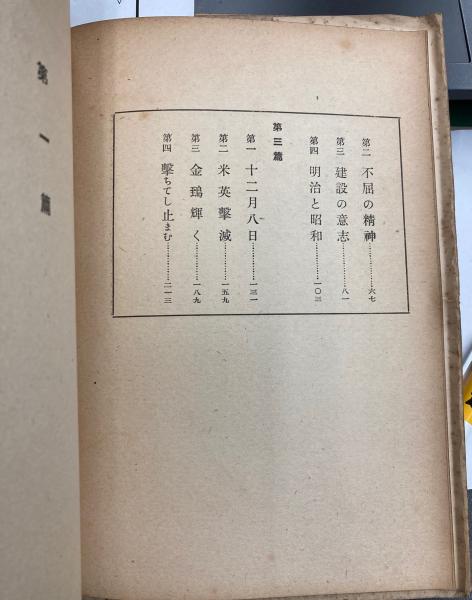 第二 不屈の精神……………六七
第三 建設の意志……………八一
第四 明治と昭和……………一〇三
第三篇
第一 十二月八日……………一三一
第二 米英擊滅……………一五九
第三 金鵄輝く……………一八九
第四 擊ちてし止まむ……………二一三
第一篇